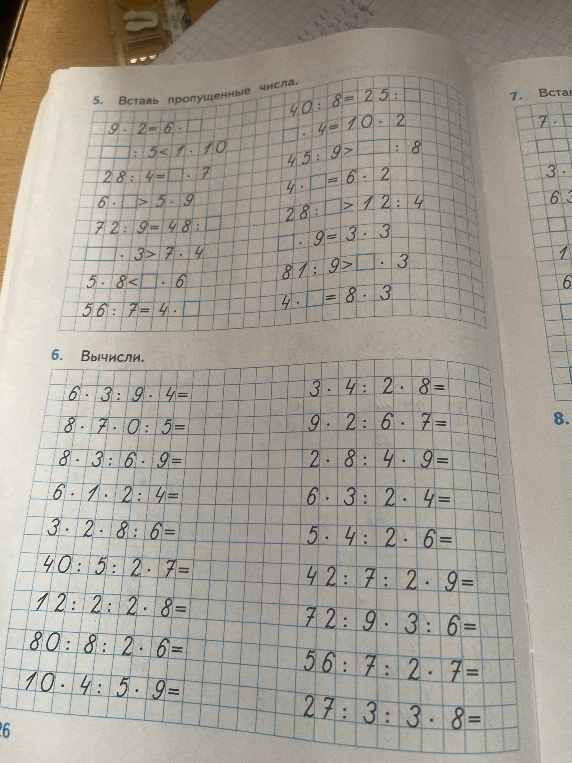 5. Вставь пропущенные числа.
9 · 2 = 6 · □
□ : 5 < 1 · 10
28 : 4 = □ · 7
6 · □ > 5 · 9
72 : 9 = 48 : □
□ · 3 > 7 · 4
5 · 8 < □ · 6
56 : 7 = 4 · □
40 : 8 = 25 : □
□ · 4 = 10 · 2
45 : 9 > □ : 8
4 · □ = 6 · 2
28 : □ > 12 : 4
□ · 9 = 3 · 3
81 : 9 > □ · 3
4 · □ = 8 · 3
6. Вычисли.
6 · 3 : 9 · 4 =
8 · 7 · 0 : 5 =
8 · 3 : 6 · 9 =
6 · 1 · 2 : 4 =
3 · 2 · 8 : 6 =
40 : 5 : 2 · 7 =
12 : 2 : 2 · 8 =
80 : 8 : 2 · 6 =
10 · 4 : 5 · 9 =
3 · 4 : 2 · 8 =
9 · 2 : 6 · 7 =
2 · 8 : 4 · 9 =
6 · 3 : 2 · 4 =
5 · 4 : 2 · 6 =
42 : 7 : 2 · 9 =
72 : 9 · 3 : 6 =
56 : 7 : 2 · 7 =
27 : 3 : 3 · 8 =
26
7. Встав
7 ·
3 ·
63
1
6
8.